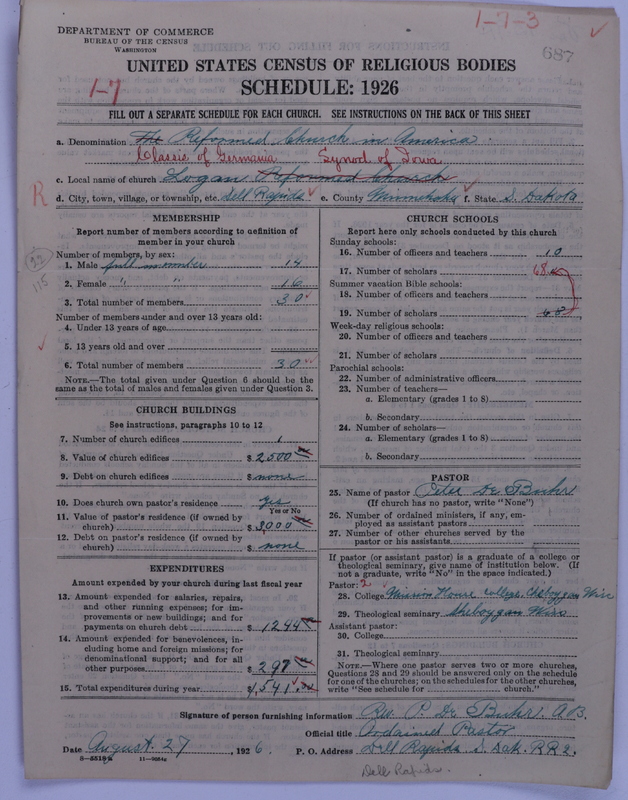 1-7-3
DEPARTMENT OF COMMERCE
BUREAU OF THE CENSUS
WASHINGTON
687
UNITED STATES CENSUS OF RELIGIOUS BODIES
1-7
SCHEDULE: 1926
FILL OUT A SEPARATE SCHEDULE FOR EACH CHURCH. SEE INSTRUCTIONS ON THE BACK OF THIS SHEET
a. Denomination The Reformed Church in America
Classis of Germania Synod of Iowa
c. Local name of church Logan Reformed Church
R
d. City, town, village, or township, etc. Dell Rapids e. County Minnehaha f. State S. Dakota
MEMBERSHIP
Report number of members according to definition of
member in your church
Number of members, by sex:
1. Male full member 14
2. Female " " 16
3. Total number of members 30
Number of members under and over 13 years old:
4. Under 13 years of age
5. 13 years old and over
6. Total number of members 30
NOTE.—The total given under Question 6 should be
same as the total of males and females given under Question 3.
22
115
CHURCH BUILDINGS
See instructions, paragraphs 10 to 12
7. Number of church edifices 1
8. Value of church edifices $ 2500
9. Debt on church edifices $ none
10. Does church own pastor's residence yes
Yes or No
11. Value of pastor's residence (if owned by
church) $ 3000
12. Debt on pastor's residence (if owned by
church) $ none
EXPENDITURES
Amount expended by your church during last fiscal year
13. Amount expended for salaries, repairs,
and other running expenses; for im-
provements or new buildings; and for
payments on church debt $ 1244
14. Amount expended for benevolences, in-
cluding home and foreign missions; for
denominational support; and for all
other purposes $ 297
15. Total expenditures during year $ 1,541
CHURCH SCHOOLS
Report here only schools conducted by this church
Sunday schools:
16. Number of officers and teachers 10
17. Number of scholars 68
Summer vacation Bible schools:
18. Number of officers and teachers
19. Number of scholars 68
Week-day religious schools:
20. Number of officers and teachers
21. Number of scholars
Parochial schools:
22. Number of administrative officers
23. Number of teachers—
a. Elementary (grades 1 to 8)
b. Secondary
24. Number of scholars—
a. Elementary (grades 1 to 8)
b. Secondary
PASTOR
25. Name of pastor Peter De Buhr
(If church has no pastor, write "None")
26. Number of ordained ministers, if any, em-
ployed as assistant pastors
27. Number of other churches served by the
pastor or his assistants
If pastor (or assistant pastor) is a graduate of a college or
theological seminary, give name of institution below. (If
not a graduate, write "No" in the space indicated.)
Pastor: 2
28. College Mission House College Cheboygan Wisc
29. Theological seminary Sheboygan Wisc
Assistant pastor:
30. College
31. Theological seminary
NOTE.—Where one pastor serves two or more churches,
Questions 28 and 29 should be answered only on the schedule
for one of the churches; on the schedules for the other churches,
write "See schedule for church."
Signature of person furnishing information Rev. P. De Buhr. A.B.
Official title Ordained Pastor
Date August 27, 1926. P. O. Address Dell Rapids S. Dak. RR 2.
8-5518a 11-9054a
Dell Rapids.